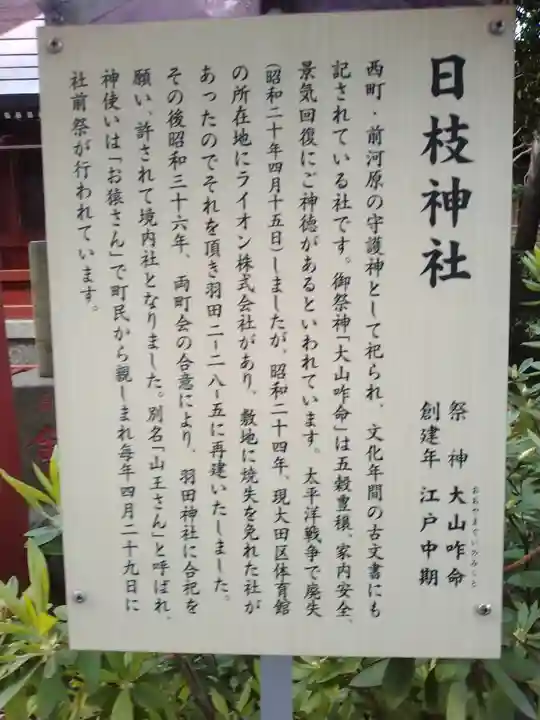 日枝神社
祭神 大山咋命
おおやまくいのみこと
創建年 江戸中期
西町・前河原の守護神として祀られ、文化年間の古文書にも
記されている社です。御祭神「大山咋命」は五穀豊穣、家内安全、
景気回復にご神徳があるといわれています。太平洋戦争で廃失
(昭和二十年四月十五日)しましたが、昭和二十四年、現大田区体育館
の所在地にライオン株式会社があり、敷地に焼失を免れた社が
あったのでそれを頂き羽田二-二八-五に再建いたしました。
その後昭和三十六年、両町会の合意により、羽田神社に合祀を
願い、許されて境内社となりました。別名「山王さん」と呼ばれ、
神使いは「お猿さん」で町民から親しまれ毎年四月二十九日に
社前祭が行われています。